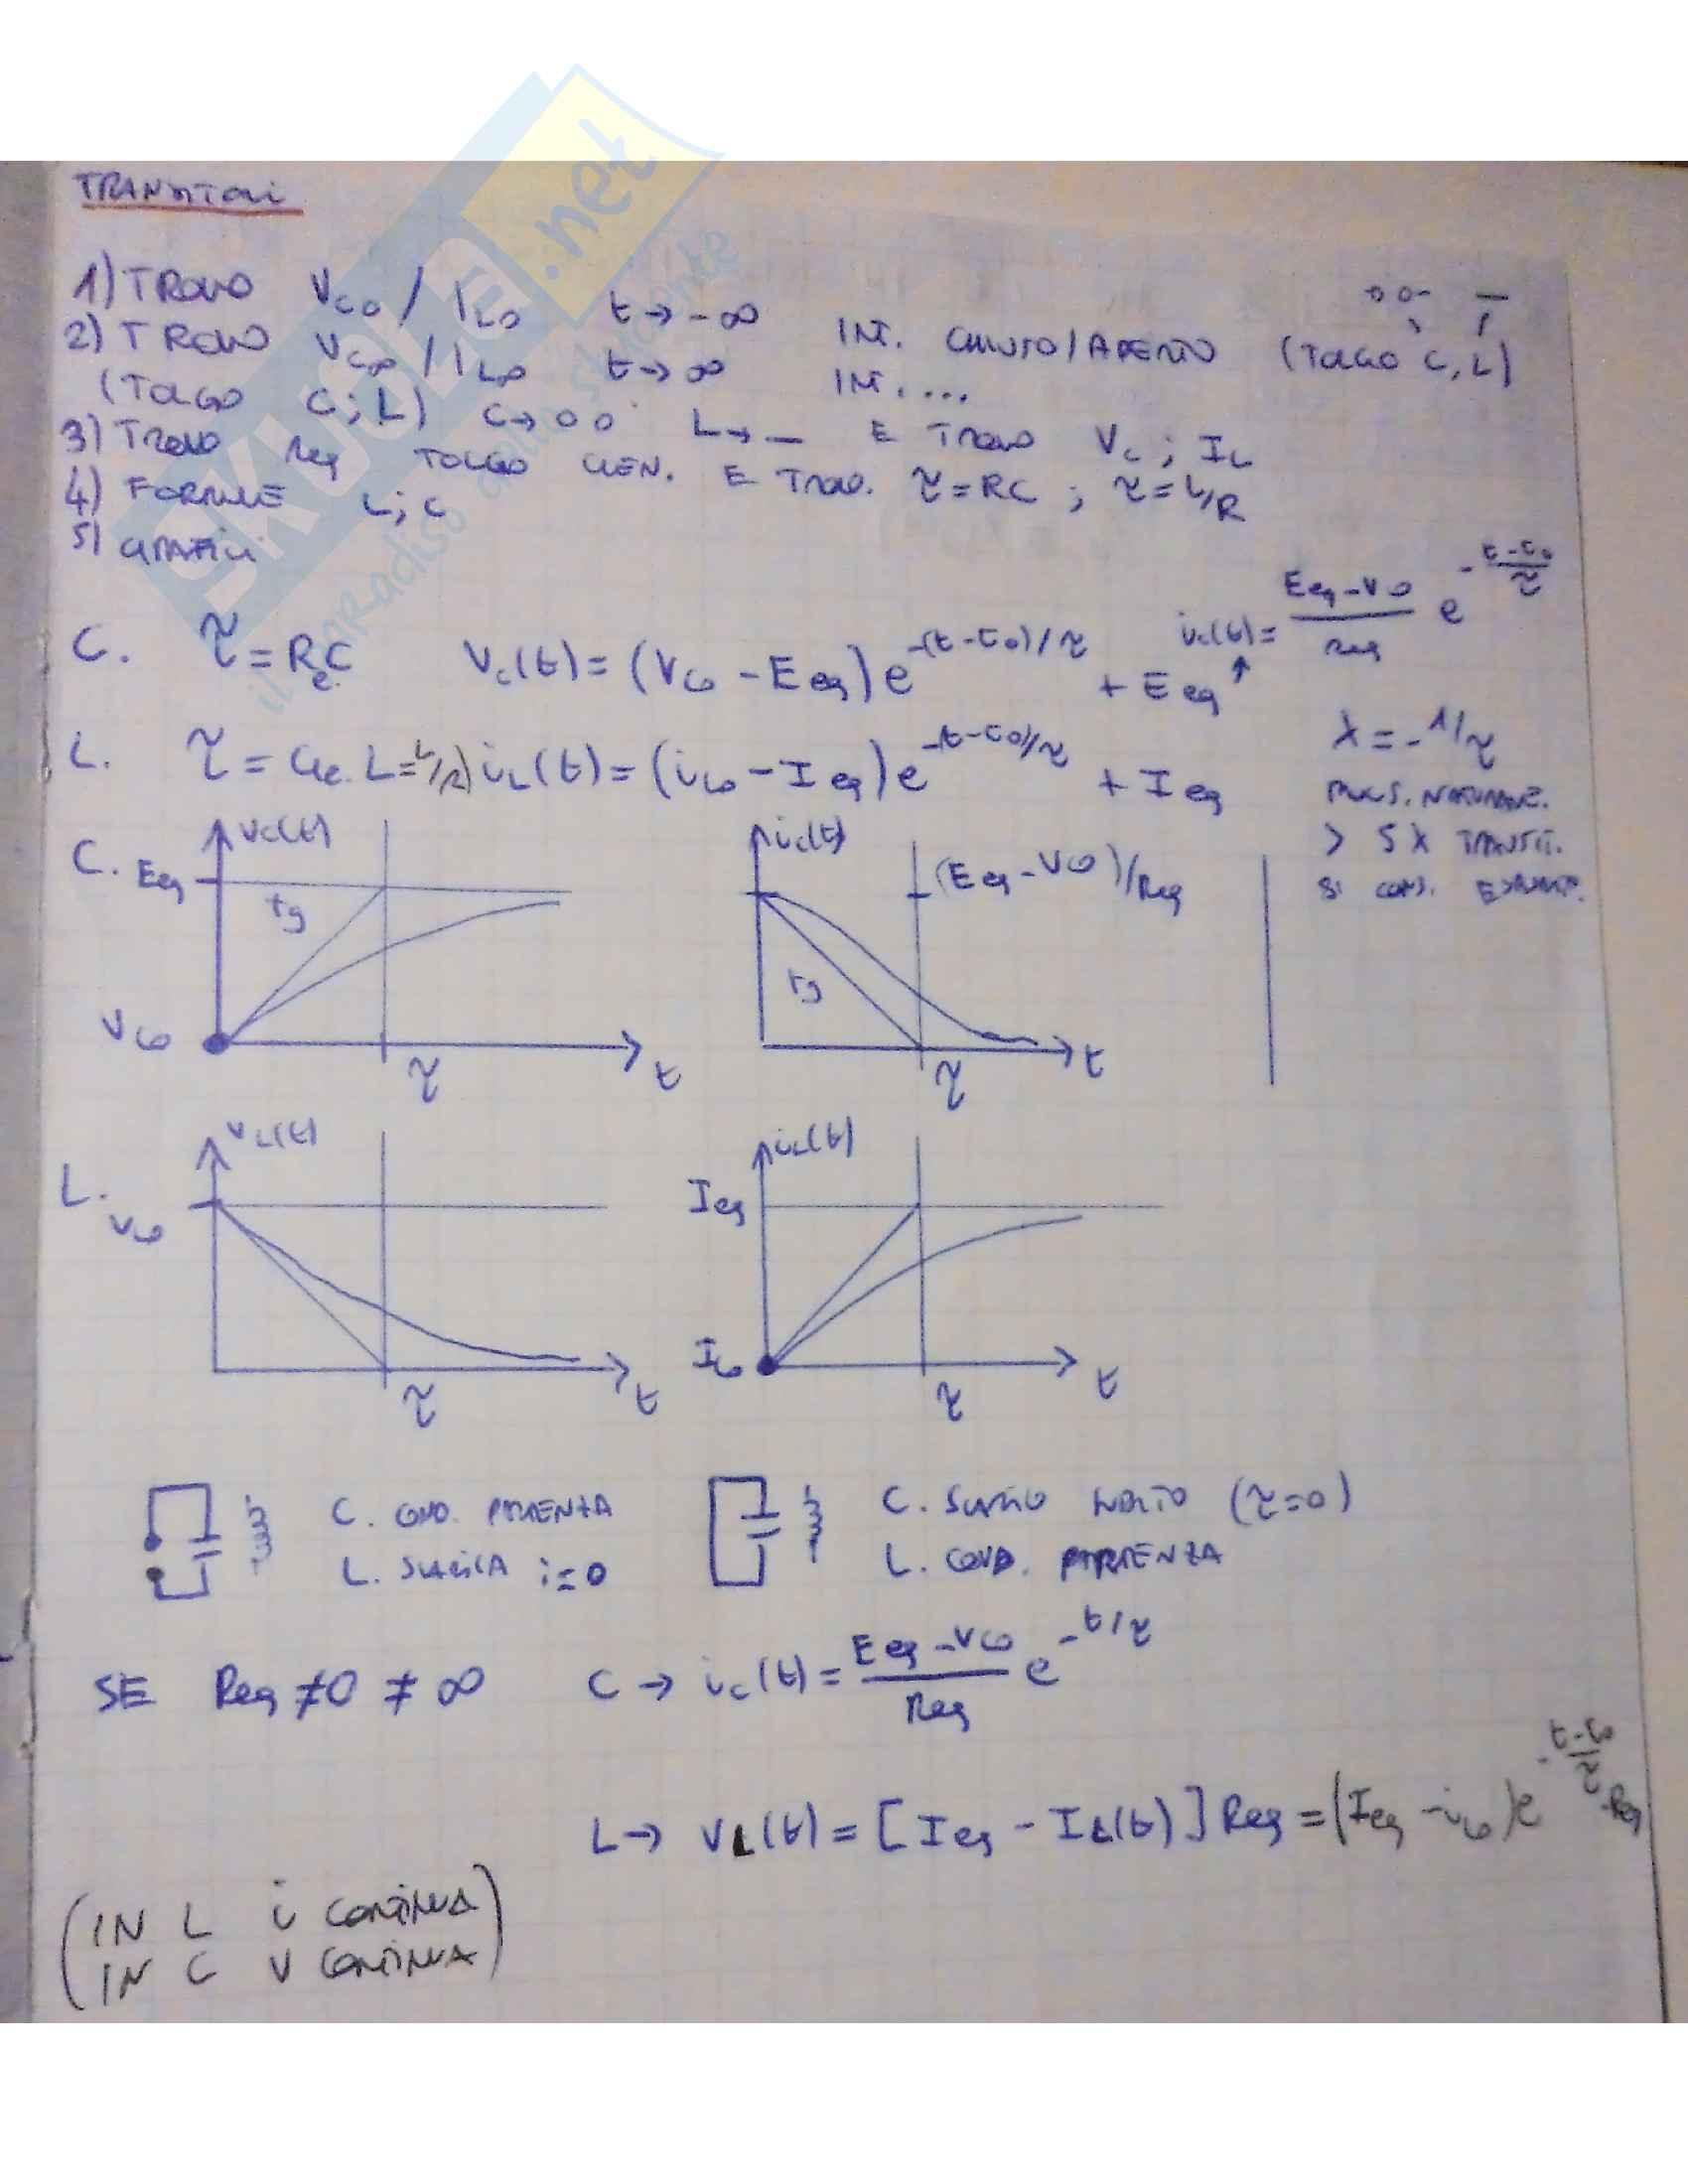 TRANSITORI
1) TROVO VC0 / IL0 t → -∞ INT. CHIUSO/APERTO (TOLGO C, L)
2) TROVO VC∞ / IL∞ t → ∞ INT. ...
(TOLGO C; L) C → o o L → — E TROVO VC ; IL
3) TROVO Req TOLGO GEN. E TROV. τ = RC ; τ = L/R
4) FORMULE L; C
5) GRAFICI
C. τ = Re C vc(t) = (Vc0 - Eeq) e^-(t-t0)/τ + Eeq
ic(t) = (Eeq - Vc0)/Req e^-(t-t0)/τ
L. τ = Ge L = L/R iL(t) = (iL0 - Ieq) e^-(t-t0)/τ + Ieq
λ = -1/τ
PULS. NATURALE.
> 5 λ TRANSIT.
SI CONS.
C. Eeq vc(t) tg Vc0 τ t
ic(t) (Eeq - Vc0)/Req tg τ t
L. vL0 vL(t) τ t
iL(t) Ieq IL0 τ t
C. COND. PARTENZA
L. SCARICA i = 0
C. SCARICO SUBITO (τ=0)
L. COND. PARTENZA
SE Req ≠ 0 ≠ ∞ C → ic(t) = (Eeq - Vc0)/Req e^-t/τ
L → vL(t) = [Ieq - IL(t)] Req = (Ieq - iL0) e^-(t-t0)/τ · Req
(IN L i CONTINUA
IN C V CONTINUA)
SKUOLA.net
il paradiso dello studente